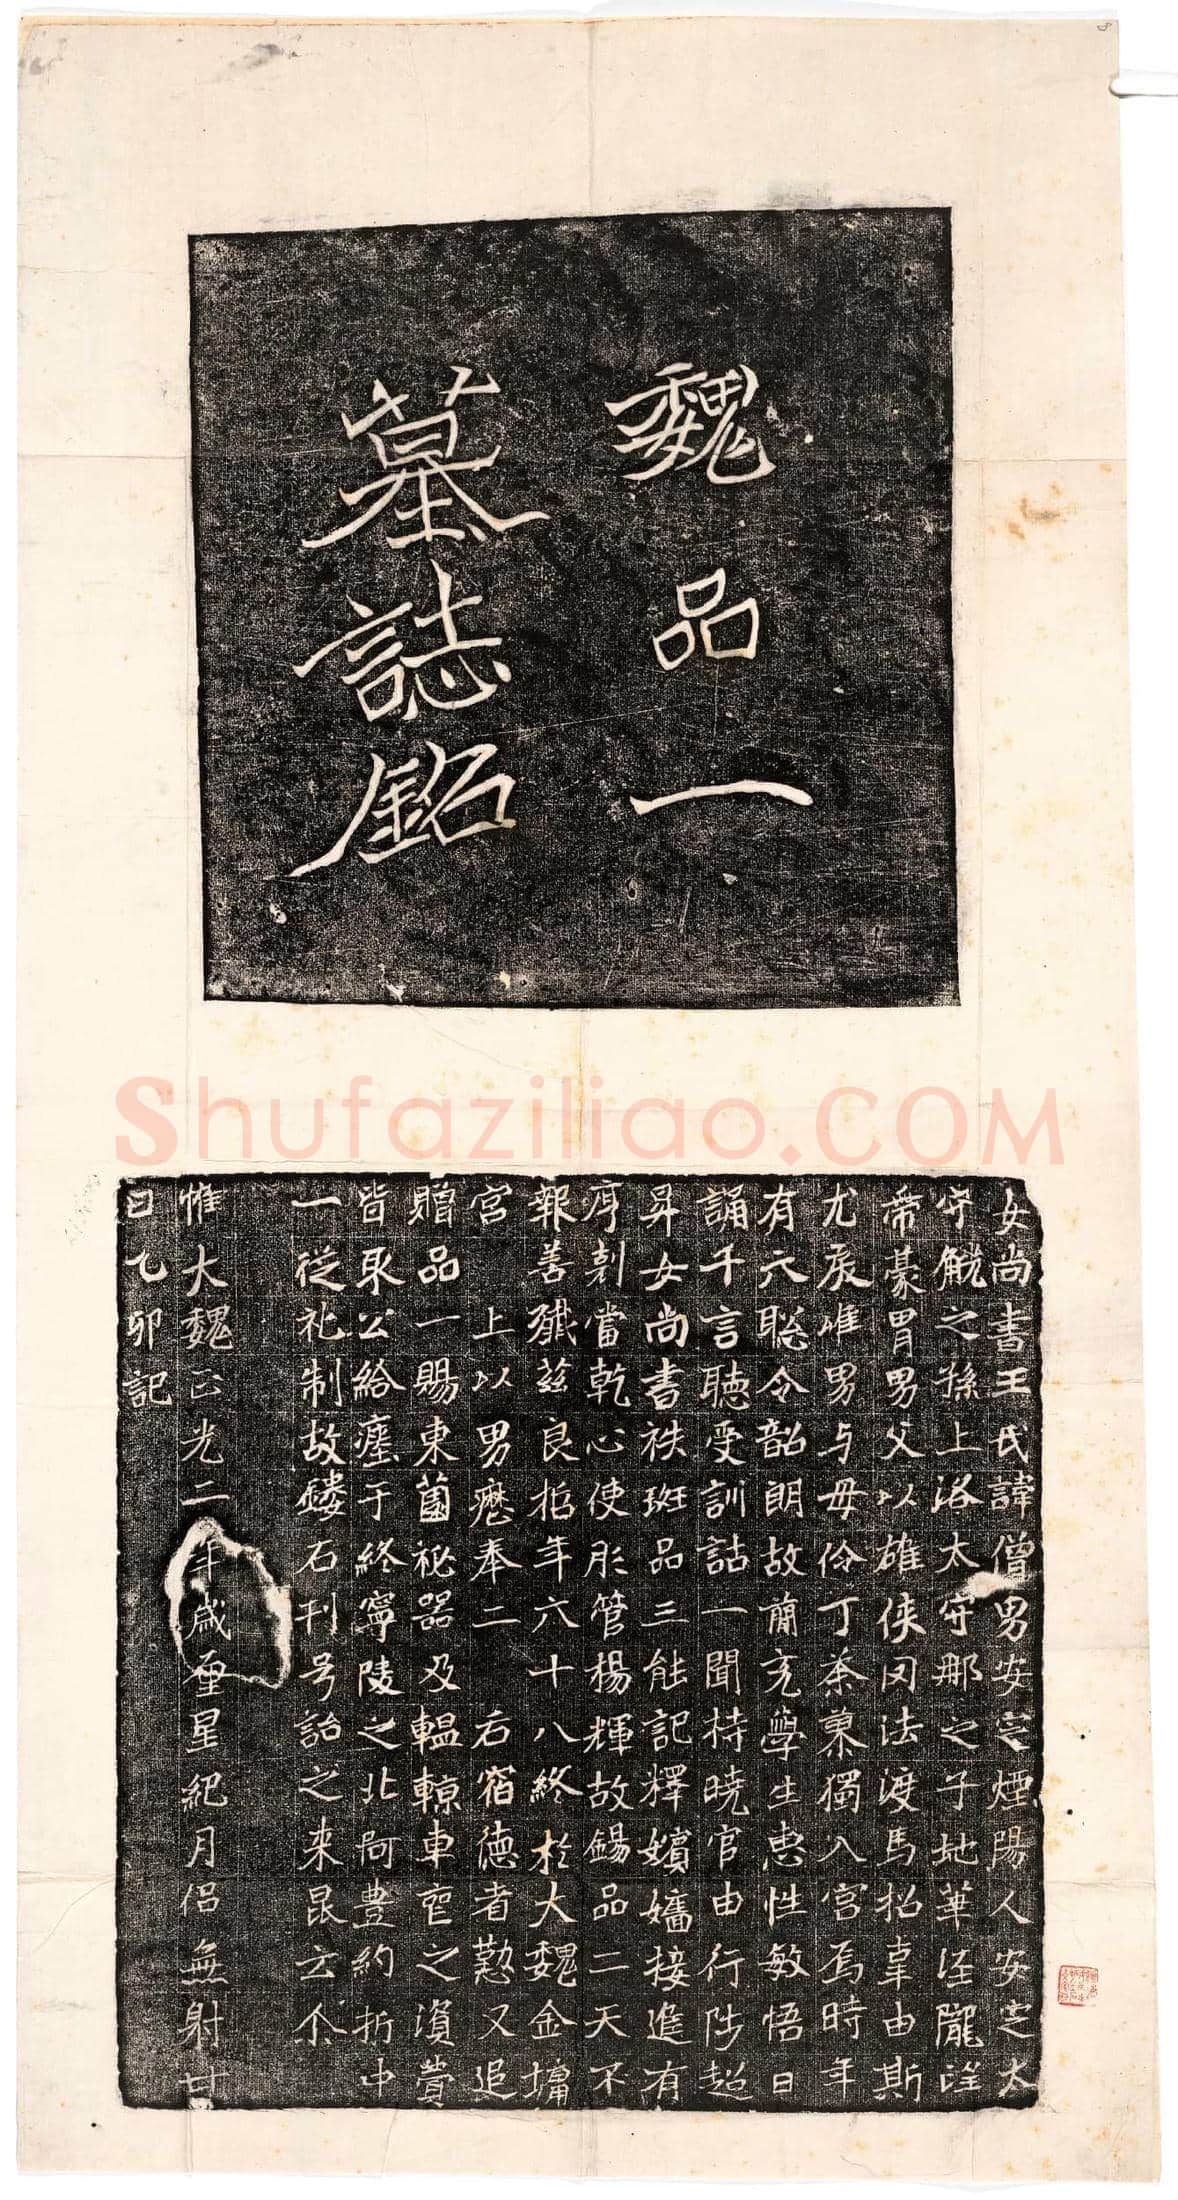 魏品一
墓誌銘
Shufaziliao.COM
女尚書王氏諱僧男安定煙陽人安定太
守觥之孫上洛太守那之子地華涇隴望
帝豪胄男父以雄俠罔法渡馬招辜由斯
尤戾唯男与母伶丁荼蓼獨入宮焉時年
有六聡令韶朗故簡充學生惠性敏悟日
誦千言聽受訓詁一聞持曉官由行陟超
昇女尚書袟班品三能記釋嬪嬙接進有
序剋當乾心使彤管楊輝故錫品二天不
報善殲茲良招年六十八終於大魏金墉
宮 上以男歷奉二 后宿德者懃又追
贈品一賜東薗秘器及轀輬車窆之資費
皆取公給瘞于終寧陵之北阿豊約折中
一從礼制故鏤石刊号詒之来昆云尒
惟大魏正光二年歲在星紀月侣無射廿
日乙卯記